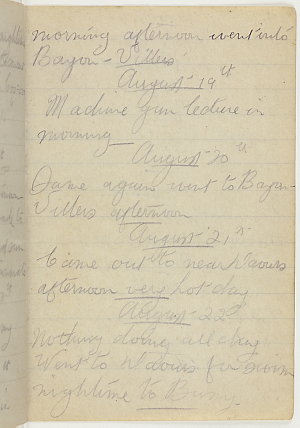 morning afternoon went into
Bayon-Villers
August 19th
Machine Gun lecture in
morning
August 20th
Same again went to Bayon-
Villers afternoon
August 21st
Came out to near Vaours
afternoon very hot day
August 22nd
Nothing doing all day
Went to Vavours for swim
nightime to Bussy.